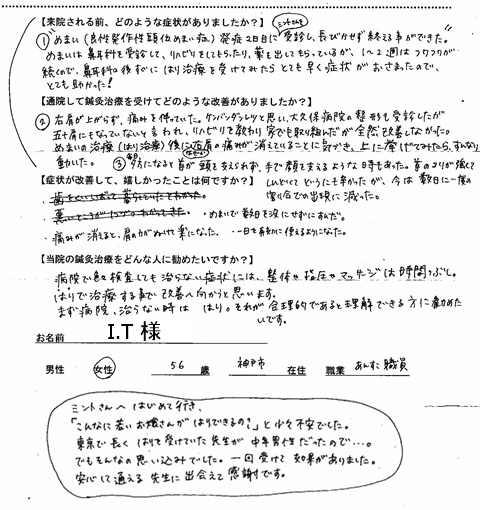 【来院される前、どのような症状がありましたか？】
ミントさんを
① めまい（良性発作性頭位めまい症）発症2日目に受診し、長びかせず終える事ができた。
めまいは耳鼻科を受診して、リハビリをしてもらったり、薬を出してもらっているが、1〜2週はフワフワが
続くので、耳鼻科の後すぐにはり治療を受けてみたらとても早く症状がおさまったので、
とても助かった!
【通院して鍼灸治療を受けてどのような改善がありましたか？】
② 右肩が上がらず、痛みを伴っていた。ケンバンダンレツと思い、大久保病院の整形も受診したが
五十肩にもなっていないと言われ、リハビリを教わり家でも取り組んだが全然改善しなかった。
めまいの治療（はり治療）後に右肩の痛みが消えていることに気づき、上に挙げてみたら、すんなり
動いた。 ③ 夕方になると首が頭を支えられず、手で顔を支えるような日時もあった。首のコリが強くて
【症状が改善して、嬉しかったことは何ですか？】 しんどくてどうにも辛かったが、今は数日に一度の
割り合での出現に減った。
・めまいで数日を没にせずにすんだ。
・痛みが消えると、肩の力がぬけて楽になった。 ・一日を有効に使えるようになった。
【当院の鍼灸治療をどんな人に勧めたいですか？】
病院で色々検査しても治らない症状には、整体や指圧やマッサージは時間つぶし。
はりで治療する事で改善へ向かうと思います。
まず病院、治らない時は はり。それが合理的であると理解できる方に勧めた
いです。
お名前 I.T 様
男性 女性 56 歳 神戸市 在住 職業 あんま職員
ミントさんへはじめて行き、
「こんなに若いお嬢さんがはりできるの？」と少々不安でした。
東京で長くはりを受けていた先生が中年男性だったので…。
でもそんなの思い込みでした。一回受けて効果がありました。
安心して通える先生に出会えて感謝です。